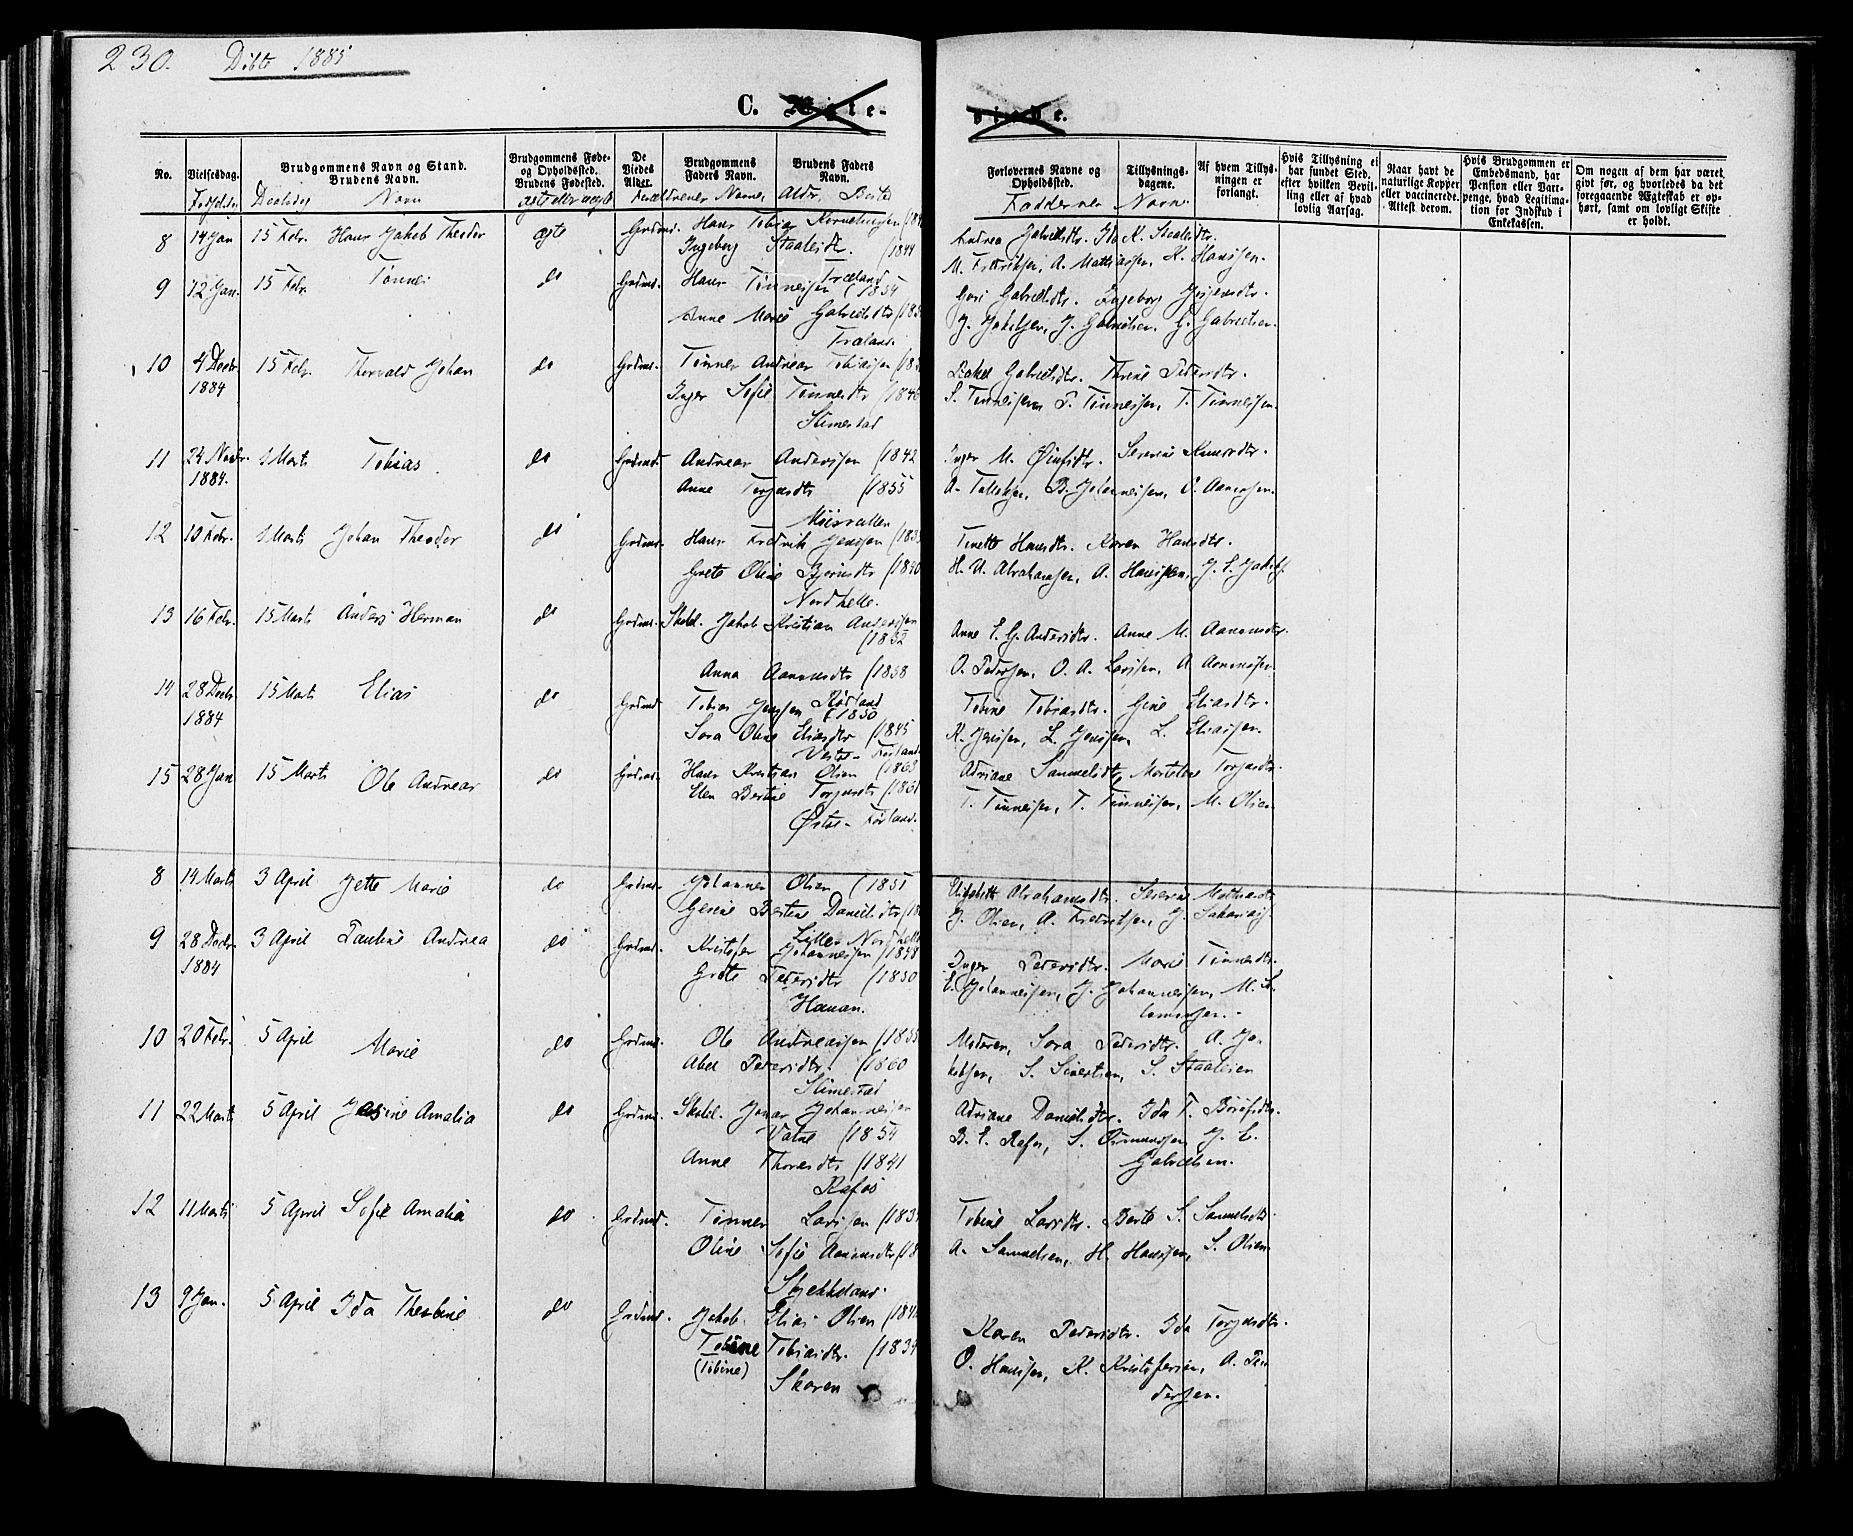 230. Døbte 1885
C. Viede.
No.
Vielsesdag.
Brudgommens Navn og Stand.
Brudens Navn.
Brudgommens Føde-
og Opholdssted.
Brudens Fødested.
De
Viedes
Alder.
Brudgommens
Faders Navn.
Brudens Faders
Navn.
Forlovernes Navne og
Opholdssted.
Tillysnings-
dagene.
Af hvem Tillys-
ningen er
forlangt.
Hvis Tillysning ei
har fundet Sted,
efter hvilken Bevil-
ling eller af hvad
lovlig Aarsag.
Naar havt de
naturlige Kopper
eller vaccinerede.
Attest derom.
Hvis Brudgommen er
Embedsmand, har
Pension eller Var-
penge, hvad Legitima-
tion for Indskud i
Enkekassen.
Om nogen af dem har været
givt før, og hvorledes da det
foregaaende Ægteskab er op-
hørt, samt om lovligt Skifte
er holdt.
Fødselsdag Daabsdag Navn ægte eller uægte Forældrenes Navne, Alder, Bosted
Faddernes Navne
8 14 Jan 15 Febr. Hans Jakob Theodor ægte Grdmd. Hans Tobias Korneliussen
Ingeborg Staalesdt. (1844
Træland
Andrea Gabrielsdtr. Ida K. Staalesdtr.
M. Fredriksen, A. Mathiassen, K. Hanssen.
9 12 Jan. 15 Febr. Tønnes do Grdmd. Hans Tønnessen (1854
Anne Marie Gabrielsdtr
Træland.
Guri Gabrielsdtr. Ingeborg Jørgensdtr.
J. Jakobsen, J. Gabrielsen, G. Gabrielsen.
10 4 Decbr. 1884 15 Febr. Thorvald Johan do Grdmd. Tønnes Andreas Tobiassen
Inger Sofie Tønnesdtr (1846
Stimestad
Rakel Gabrielsdtr. Thrine Pedersdtr.
S. Tønnessen, P. Tønnessen, T. Tønnessen.
11 24 Novbr. 1884. 1 Marts Tobias. do Grdmd. Andreas Anderssen (1842
Anne Torjusdtr (1855
Inger M. Øinfsdtr. Severine Knudsdtr.
A. Tollaksen, B. Johannessen, S. Aanensen.
12 10 Febr. 1 Marts Johan Theodor do Grdmd. Hans Fredrik Jenssen
Grete Oline Bjørnsdtr (1840
Nordhelle.
Tinette Hansdtr. Karen Hansdtr.
H. U. Abrahamsen, A. Hanssen, J. S. Jakobs.
13 16 Febr. 15 Marts Anders Herman do Grdmd. Skold. Jakob Kristian Anderssen
(1852
Anna Aanensdtr (1858
Rørland
Anne E. G. Andersdtr. Anne M. Aanensdtr.
O. Pedersen, O. A. Larssen, A. Aanensen.
14 28 Decbr. 1884 15 Marts Elias do Grdmd. Tobias Jenssen (1850
Sara Oline Eliasdtr (1845
Vestre-Førland
Tobine Tobiasdtr. Gine Eliasdtr.
K. Jenssen, L. Jenssen, L. Eliassen.
15 28 Jan 15 Marts Ole Andreas do Grdmd. Hans Kristian Olsen (1863
Elen Bertine Torjusdtr (1861
Østre-Førland.
Adriane Samuelsdtr, Martine Torjusdtr.
T. Tønnessen, T. Tønnessen, M. Olsen
8 14 Marts 3 April Jette Marie do Grdmd. Johannes Olsen (1851
Gesine Bertine Danielsdtr
Lille Nordhelle
Elisabeth Abrahamsdtr. Severine Mathiasdtr
J. Olsen, A. Fredriksen, J. Sakarias.
9 28 Decbr. 1884 3 April Pauline Andrea do Grdmd. Kristofer Johannessen (1848
Grete Pedersdtr (1850
Hanan.
Inger Pedersdtr. Marie Tønnesdtr.
E. Johannessen, J. Johannessen, M. Sa-
lomonsen.
10 20 Febr. 5 April Marie do Grdmd. Ole Andreassen (1855
Abel Pedersdtr. (1860
Stimestad
Moderen, Sara Pedersdtr. A. Ja-
kobsen, S. Sivertsen, S. Staalesen
11 22 Marts 5 April Jasine Amalia do Grdmd. Skold. Jonas Johannessen
Vatne (1854
Anne Thorasdtr (1841
Rafos
Adriane Danielsdtr. Ida T. Børufsdtr.
B. E. Rafos, S. Gunnarssen, J. E.
Gabrielsen.
12 11 Marts 5 April Sofie Amalia do Grdmd. Tønnes Larssen
Oline Sofie Aanensdtr
Stjekkeland.
Tobine Larsdtr. Berte S. Samuelsdtr.
A. Samuelsen, H. Hanssen, S. Olsen
13 9 Jan. 5 April Ida Theoline do Grdmd. Jakob Elias Olsen
Tobine Tobiasdtr. (1834
(Tobine) Skoren
Karen Pedersdtr. Ida Torjusdtr.
O. Hanssen, K. Kristofersen, A. Pe-
dersen.